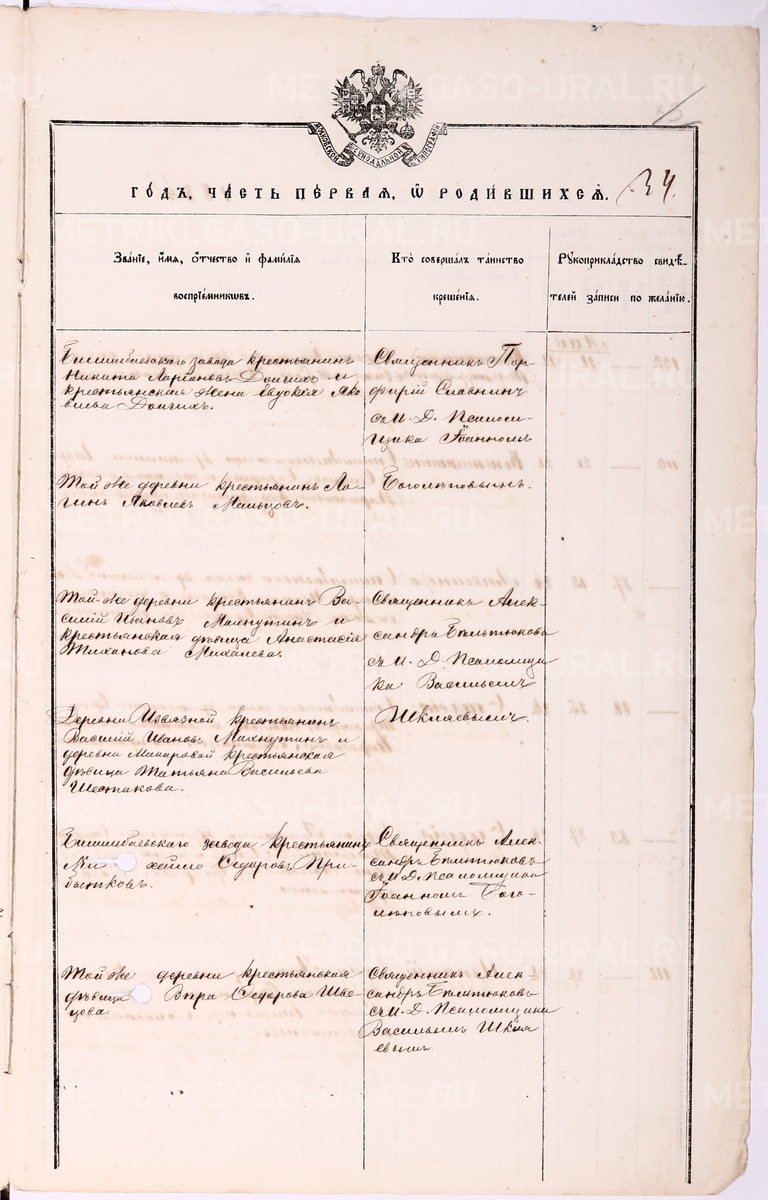 METRIKI.GASO-URAL.RU
МОСКОВСКОЙ СѴНОДАЛЬНОЙ ТИПОГРАФІИ
34.
ГО́ДЪ, ЧА́СТЬ ПЕ́РВАЯ, Ѿ РОДИ́ВШИХСЯ.
Зва́нїе, и́мя, ѻ́тчество и҆ фами́лїя
воспрїе́мникѡвъ.
Кто̀ соверша́лъ та́инство
креще́нїя.
Рꙋкоприкла́дство свидѣ́-
телей за́писи по жела́нїю.
Билимбаевскаго завода крестьянинъ
Никита Ларіоновъ Долгихъ и
крестьянская жена Евдокія Яко
влева Долгихъ.
Священникъ Пор-
фирій Славнинъ
съ И. Д. Псаломи-
щика Іоанномъ
Той же деревни крестьянинъ Ло-
гинъ Яковлевъ Мальцовъ.
Боголѣповымъ.
Той-же деревни крестьянинъ Ва-
силій Ивановъ Махнутинъ и
крестьянская дѣвица Анастасія
Тиханова Михалева.
Священникъ Алек-
сандръ Бѣльтюковъ
съ И. Д. Псаломщи
ка Васильемъ
Деревни Извязной крестьянинъ
Василій Ивановъ Махнутинъ и
деревни Макаровой крестьянская
дѣвица Татьяна Васильева
Шестакова.
Шкляевымъ.
Билимбаевскаго завода крестьянинъ
Сидоровъ При-
бытковъ.
Священникъ Алек-
сандръ Бѣльтюковъ
съ И. Д. Псаломщика
Іоанномъ Бого-
лѣповымъ.
Той же деревни крестьянская
дѣвица Вѣра Сидорова Шве-
цова.
Священникъ Алек-
сандръ Бѣльтюковъ
съ И. Д. Псаломщика
Васильемъ Шкля
евымъ